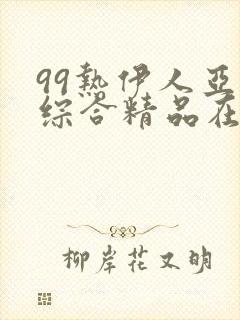 99热伊人亚
综合精品在
柳岸花又明